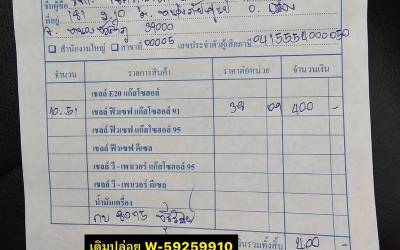 ชื่อผู้ซื้อ
ที่อยู่ 181 ม.10
39000
สำนักงานใหญ่ สาขาที่ 00005 เลขประจำตัวผู้เสียภาษี 0415554000050
จำนวน รายการสินค้า ราคาต่อหน่วย จำนวนเงิน
เชลล์ E20 แก๊สโซฮอล์
10.51 เชลล์ ฟิวเซฟ แก๊สโซฮอล์ 91 38 09 400 -
เชลล์ ฟิวเซฟ แก๊สโซฮอล์ 95
เชลล์ ฟิวเซฟ ดีเซล
เชลล์ วี - เพาเวอร์ แก๊สโซฮอล์ 95
เชลล์ วี - เพาเวอร์ ดีเซล
น้ำมันเครื่อง
กบ 8095
รวมทั้งสิ้น 400 -
เดิมปล่อย W-59259910